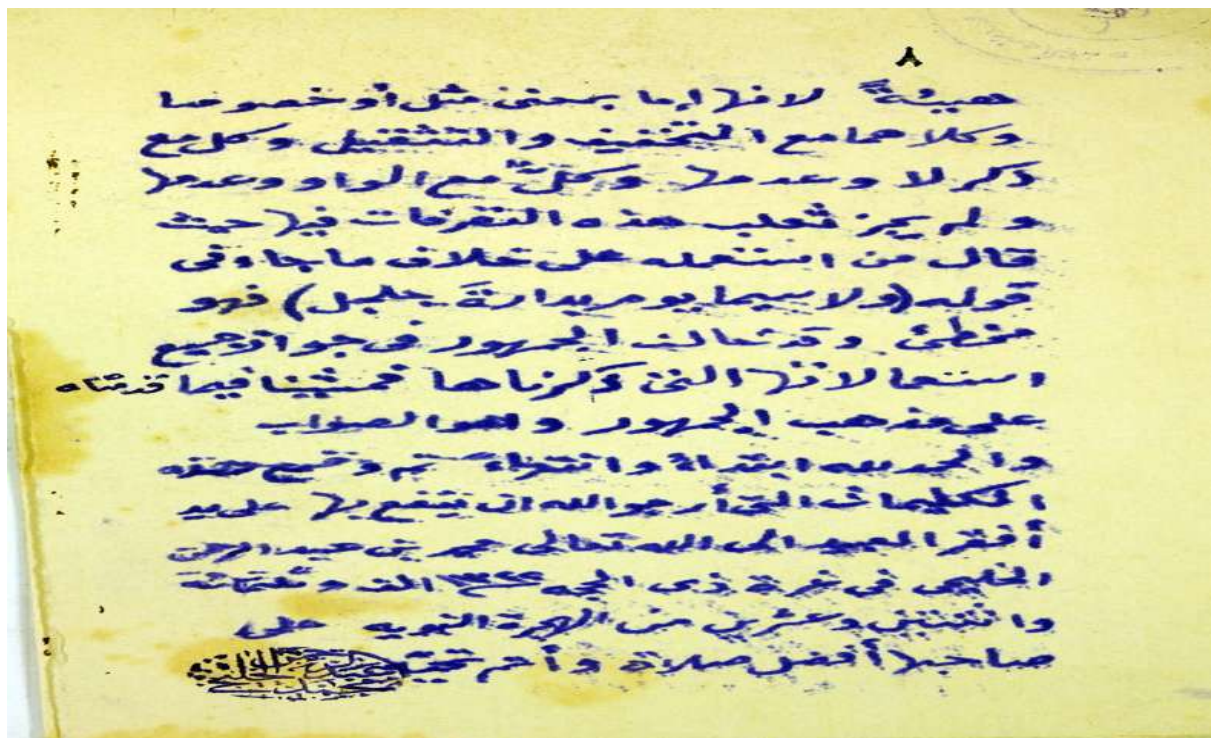 ٨
هيئةً لانها إما بمعنى مثل أو خصوصا
وكلاهما مع التخفيف والتثقيل وكل مع
ذكر لا وعدمها وكلٌّ مع الواو وعدمها
ولم يجز ثعلب هذه التصرفات فيها حيث
قال من استعمله على خلاف ما جاء فى
قوله (ولا سيما يوم بدارةَ جلجل) فهو
مخطئ وقد خالف الجمهور فى جواز جميع
استعمالاتها التى ذكرناها فمشينا فيما قدمناه
على مذهب الجمهور وهو الصواب
والحمد لله ابتداءً وانتهاءً تم وضع هذه
الكليمات التى أرجو الله ان ينفع بها على يد
أفقر العبيد الى الله تعالى محمد بن عبد الرحمن
فى غرة ذى الحجه ١٣٢٢ الف وثلثمائة
واثنتين وعشرين من الهجرة النبويه على
صاحبها أفضل صلاة وأتم